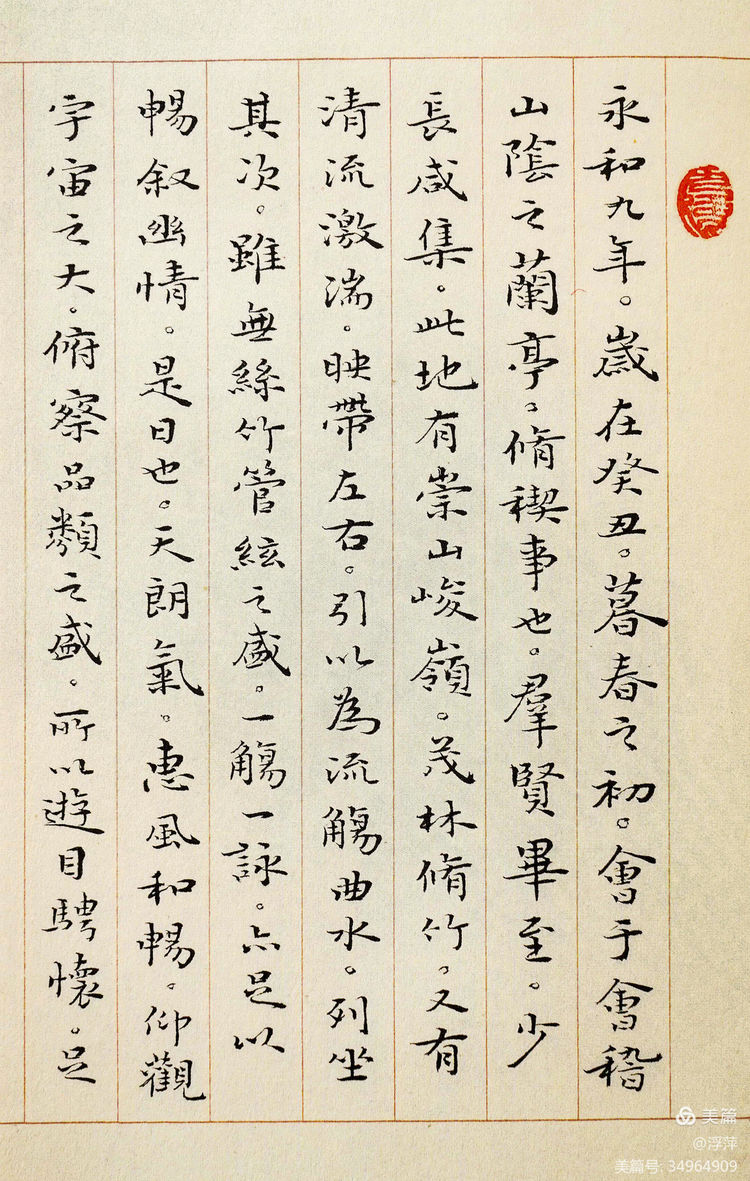 永和九年。歲在癸丑。暮春之初。會于會稽
山陰之蘭亭。脩稧事也。羣賢畢至。少
長咸集。此地有崇山峻嶺。茂林脩竹。又有
清流激湍。映帶左右。引以為流觴曲水。列坐
其次。雖無絲竹管絃之盛。一觴一詠。亦足以
暢叙幽情。是日也。天朗氣。惠風和暢。仰觀
宇宙之大。俯察品類之盛。所以遊目騁懷。足
美篇
@浮萍
美篇号: 34964909